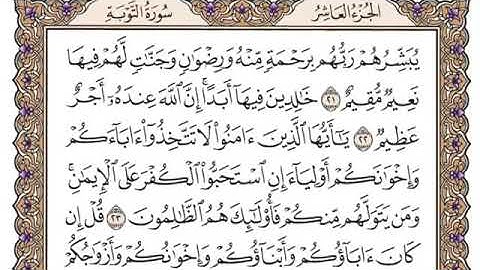 الجزء العاشر
سورة التوبة
يُبَشِّرُهُمْ رَبُّهُم بِرَحْمَةٍ مِّنْهُ وَرِضْوَٰنٍ وَجَنَّٰتٍ لَّهُمْ فِيهَا
نَعِيمٌ مُّقِيمٌ ٢١ خَٰلِدِينَ فِيهَآ أَبَدًا ۚ إِنَّ ٱللَّهَ عِندَهُۥٓ أَجْرٌ
عَظِيمٌ ٢٢ يَٰٓأَيُّهَا ٱلَّذِينَ ءَامَنُوا۟ لَا تَتَّخِذُوٓا۟ ءَابَآءَكُمْ
وَإِخْوَٰنَكُمْ أَوْلِيَآءَ إِنِ ٱسْتَحَبُّوا۟ ٱلْكُفْرَ عَلَى ٱلْإِيمَٰنِ ۚ
وَمَن يَتَوَلَّهُم مِّنكُمْ فَأُو۟لَٰٓئِكَ هُمُ ٱلظَّٰلِمُونَ ٢٣ قُلْ إِن
كَانَ ءَابَآؤُكُمْ وَأَبْنَآؤُكُمْ وَإِخْوَٰنُكُمْ وَأَزْوَٰجُكُمْ